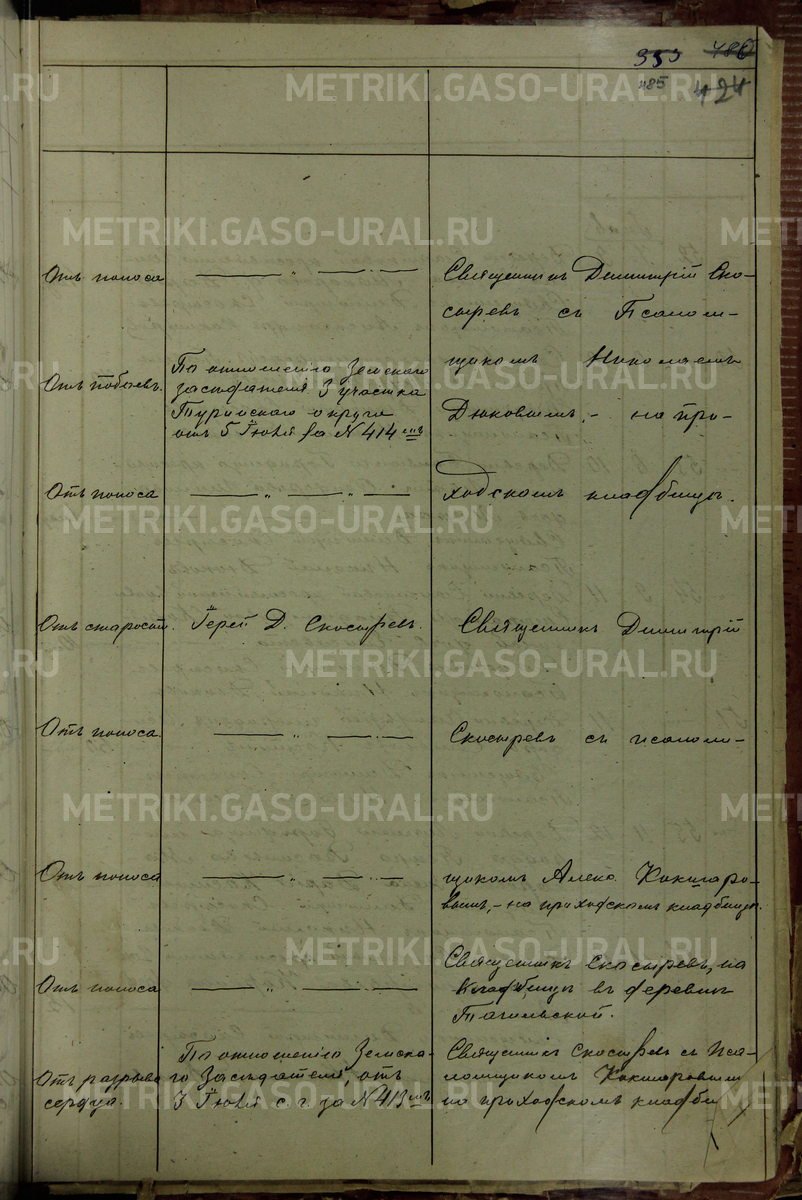 353 486
485 424
Отъ поноса
Священникъ Димитрій Ско-
сыревъ съ Псалом-
щикомъ Николаемъ
Дюковымъ, - на при-
ходскомъ кладбищѣ.
Отъ побоевъ.
По отношенію Земскаго
засѣдателя 3 участка
Туринскаго округа
отъ 5 Іюля за N 414 мъ
Отъ поноса
Отъ старости.
Іерей Д. Скосыревъ.
Священникъ Димитрій
Отъ поноса.
Скосыревъ съ псалом-
Отъ поноса
щикомъ Алекс. Кокшаро-
вымъ, - на приходскомъ кладбищѣ.
Отъ поноса
Священникъ Скосыревъ, на
кладбищѣ въ деревнѣ
Тагильской.
Отъ разрыва
сердца.
По отношенію Земска-
го Засѣдателя, отъ
3 Іюля с. г. за N 413 мъ
Священникъ Скосыревъ съ Пса-
ломщикомъ Кокшаровымъ
на приходскомъ кладби
METRIKI.GASO-URAL.RU